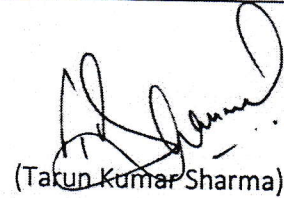 (Tarun Kumar Sharma)